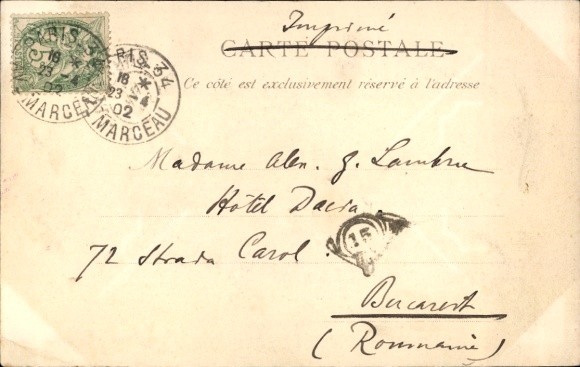 Imprimé
CARTE POSTALE
Ce côté est exclusivement réservé à l'adresse
PARIS 34
18 *
23 4
02
Av. MARCEAU
Madame Alex. J. Lambru
Hôtel Dacia
15
72 Strada Carol.
Bucarest
(Roumanie)